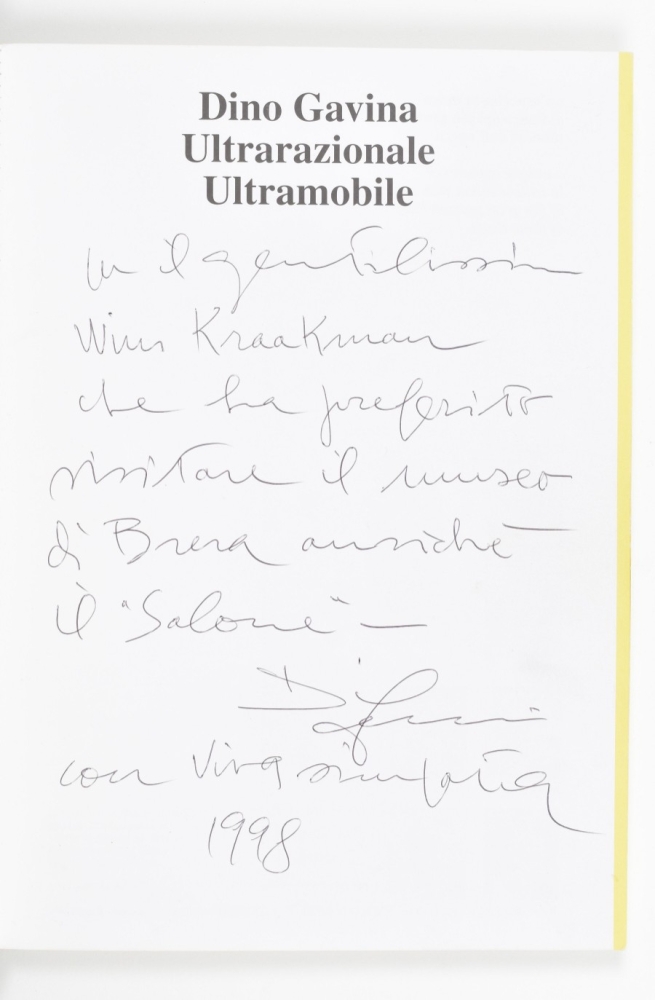 Dino Gavina
Ultrarazionale
Ultramobile
il gentilissim
Wim Kraakman
che ha preferito
visitare il museo
di Brera anziché
il "Salone" –
con viva simpatia
1998